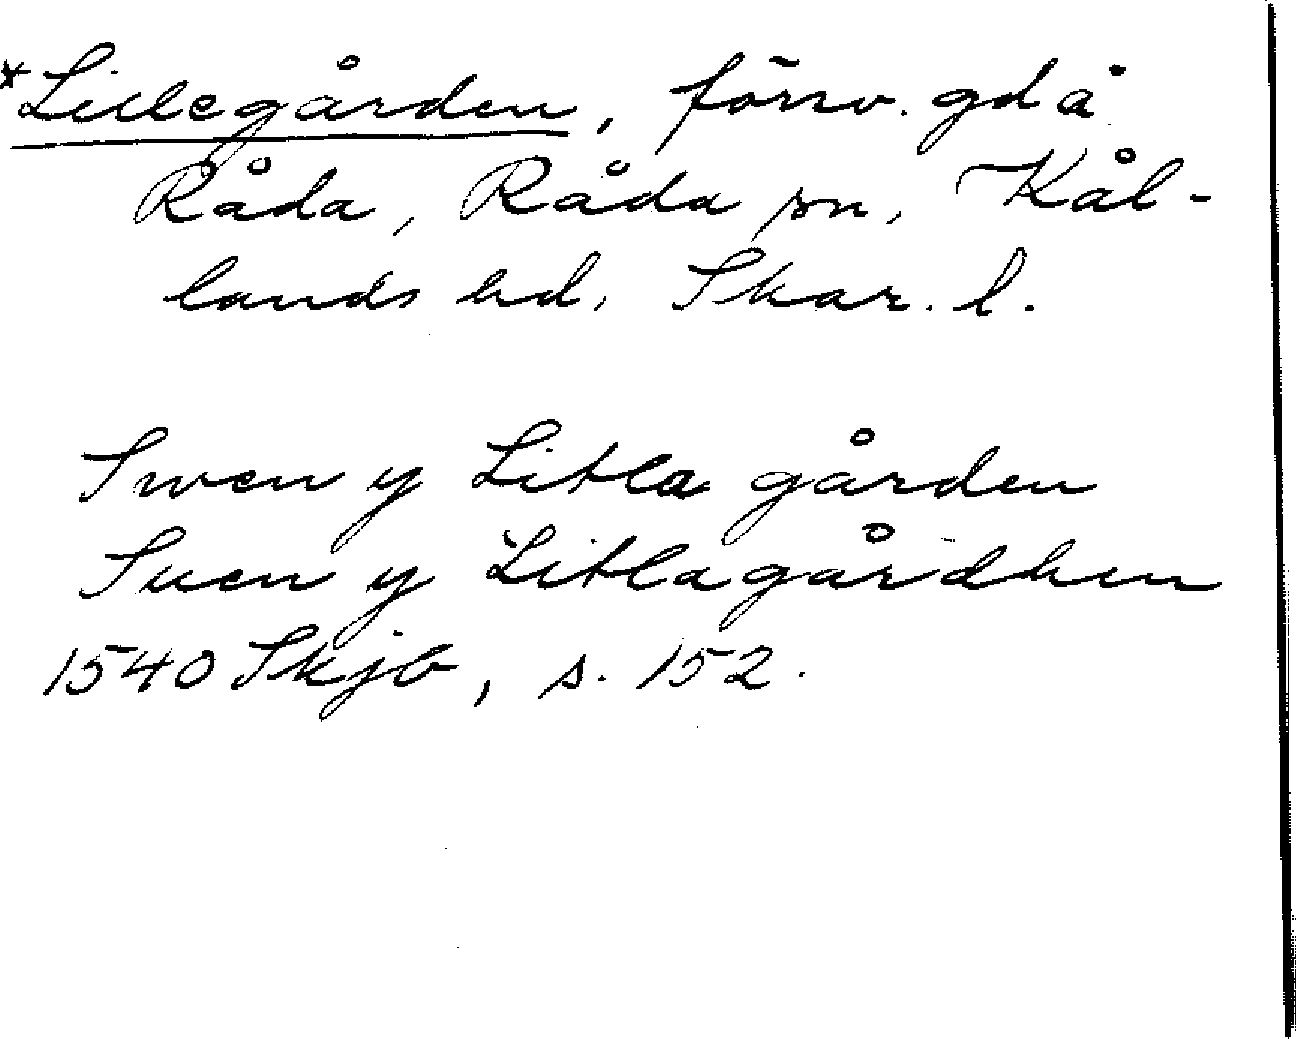 *Lillegården, försv. gd å
Råda, Råda sn, Kål-
lands hd, Skar. l.
Swen y Litla gården
Suen y Litlagårdhen
1540 Skjb, s. 152.